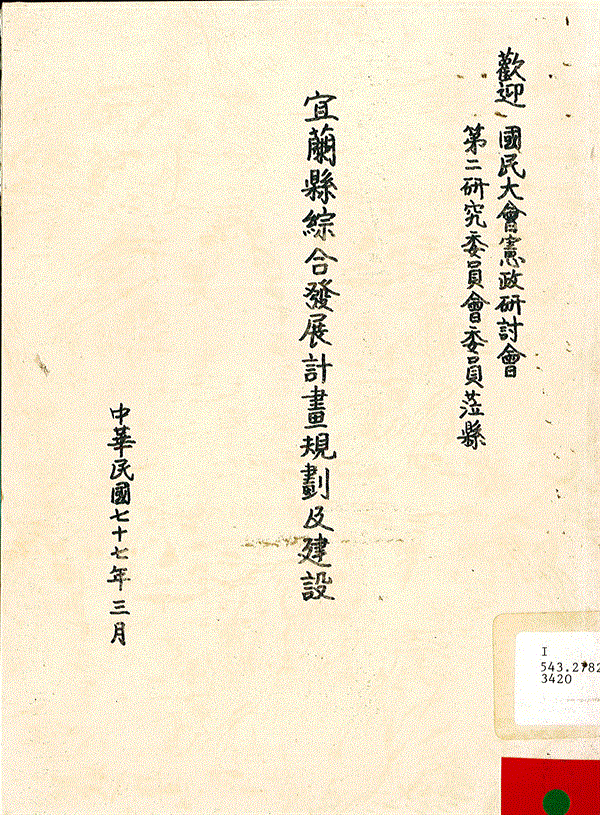 歡迎 國民大會憲政研討會
第二研究委員會委員蒞縣
宜蘭縣綜合發展計畫規劃及建設
中華民國七十七年三月
I
543.2782
3420